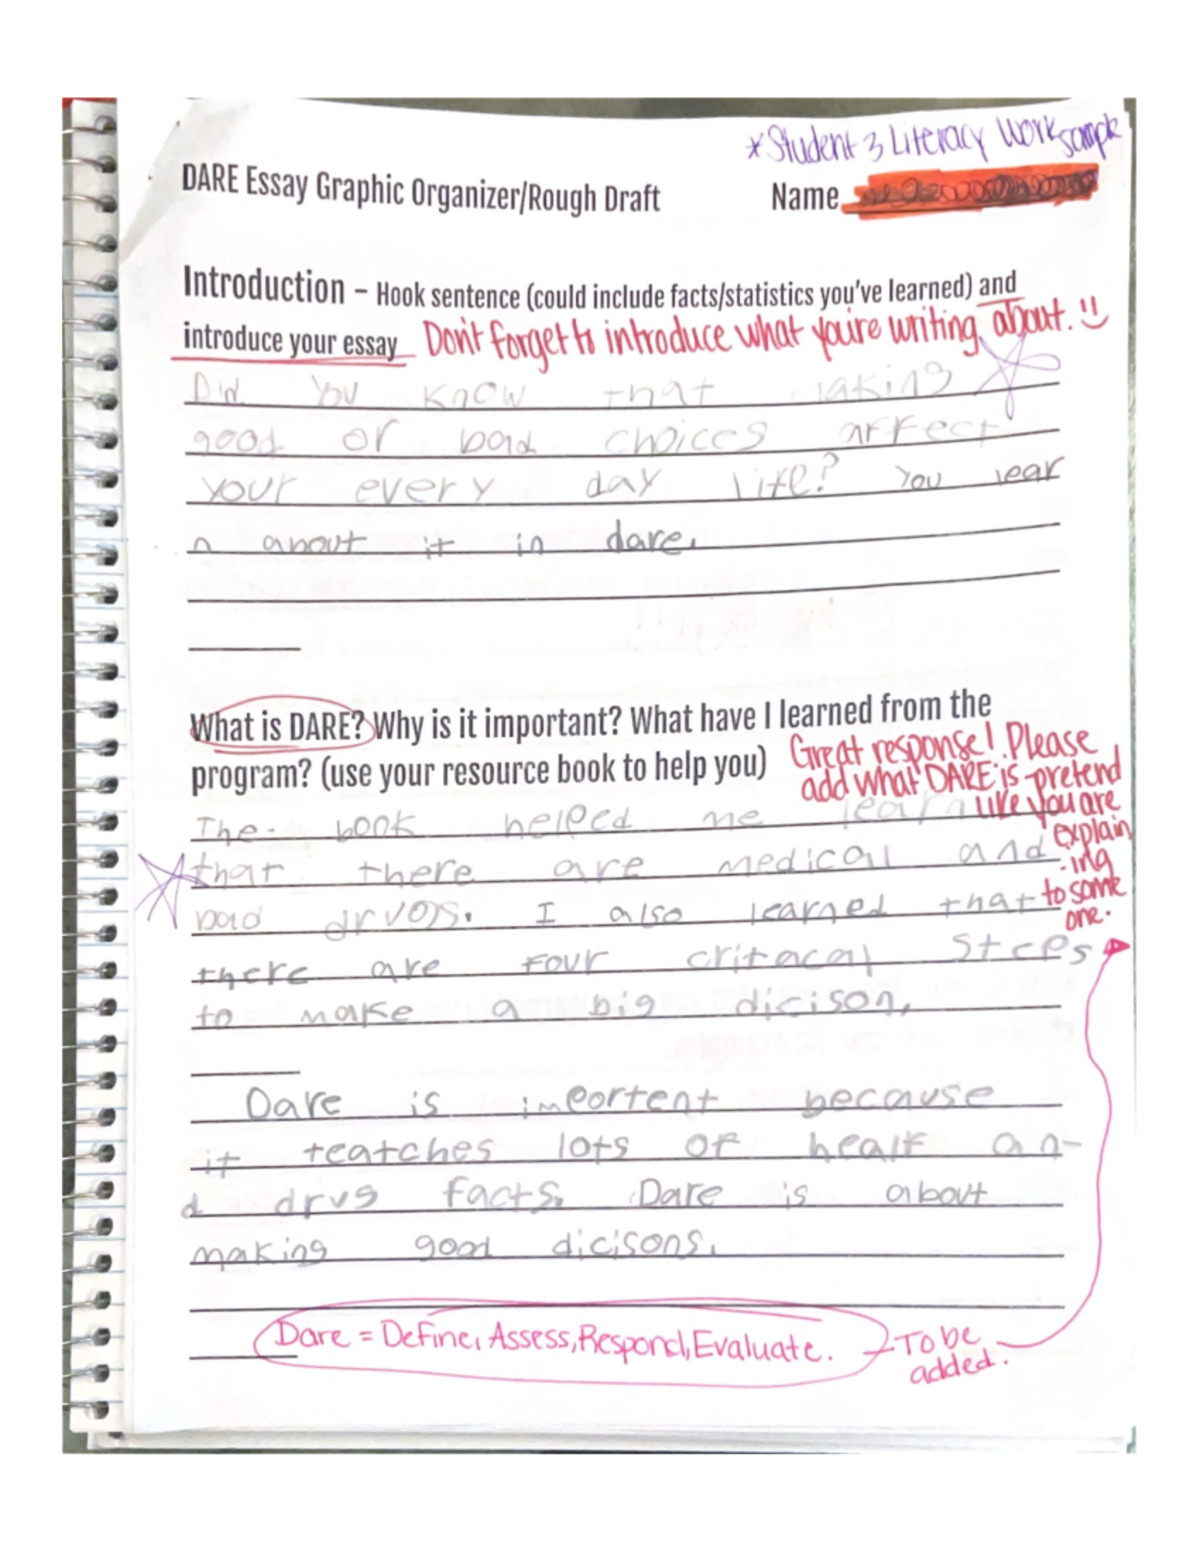 *Student 3 Literacy Work sample
DARE Essay Graphic Organizer/Rough Draft Name
Introduction – Hook sentence (could include facts/statistics you've learned) and
introduce your essay Don't forget to introduce what you're writing about. :)
Did you know that making
good or bad choices affect
your every day life? You lear
n about it in dare.
What is DARE? Why is it important? What have I learned from the
program? (use your resource book to help you)
Great response! Please
add what DARE is - pretend
like you are
explain
-ing
to some
one.
The book helped me learn
that there are medical and
bad drugs. I also learned that
there are four critacal steps
to make a big dicison.
Dare is importent because
it teatches lots of healf an-
d drug facts. Dare is about
making good dicisons.
Dare = Define, Assess, Respond, Evaluate.
To be
added.